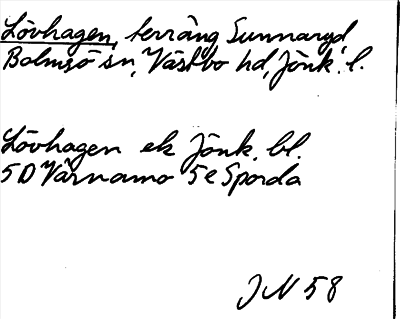 Lövhagen, terräng Sunnaryd
Bolmsö sn, Västbo hd, Jönk. l.
Lövhagen ek Jönk. bl.
5D Värnamo 5e Sporda
JN 58